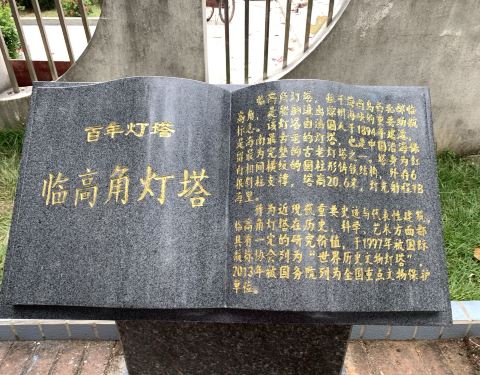 百年灯塔
临高角灯塔
临高角灯塔，位于海南岛西北部临
高角，是船舶进出琼州海峡的重要助航
标志。该灯塔由法国人于1894年建造，
是海南最古老的灯塔，也是中国沿海保
留最为完整的古老灯塔之一。塔身为红
白相间横纹的圆柱形铸铁结构，外有6
根斜柱支撑，塔高20.6米，灯光射程18
海里。
作为近现代重要史迹与代表性建筑，
临高角灯塔在历史、科学、艺术方面都
具有一定的研究价值，于1997年被国际
航标协会列为“世界历史文物灯塔”，
2013年被国务院列为全国重点文物保护
单位。